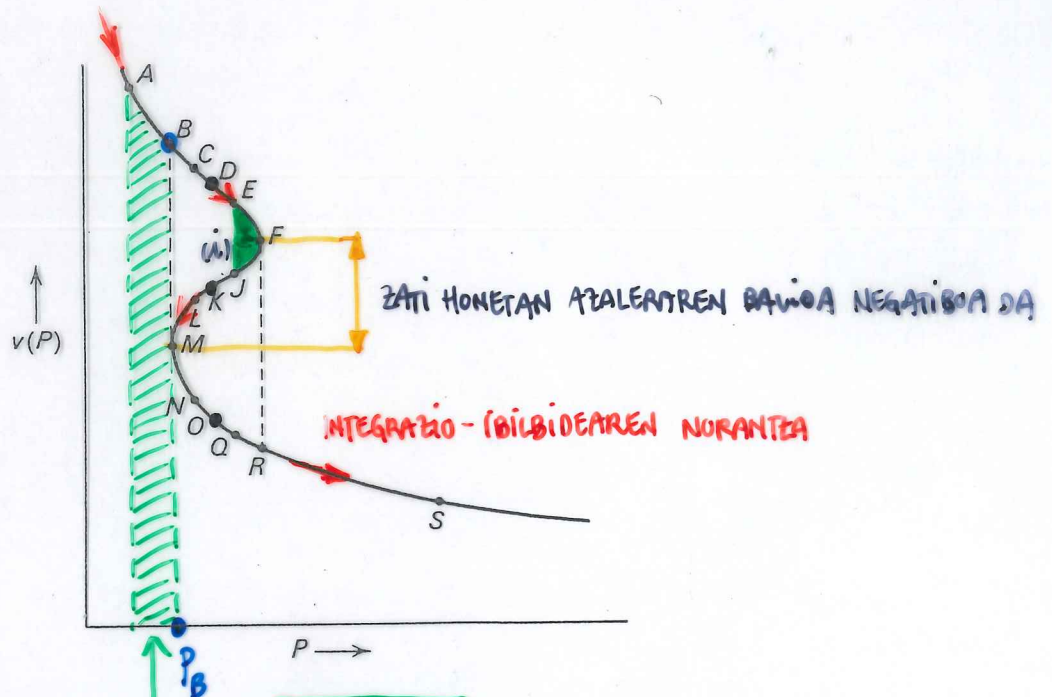 A
B
C
D
E
F
(i)
J
K
L
ZATI HONETAN AZALERAREN BALIOA NEGATIBOA DA
v(P)
M
N
O
INTEGRAZIO-IBILBIDEAREN NORANTZA
Q
R
S
P
P_B